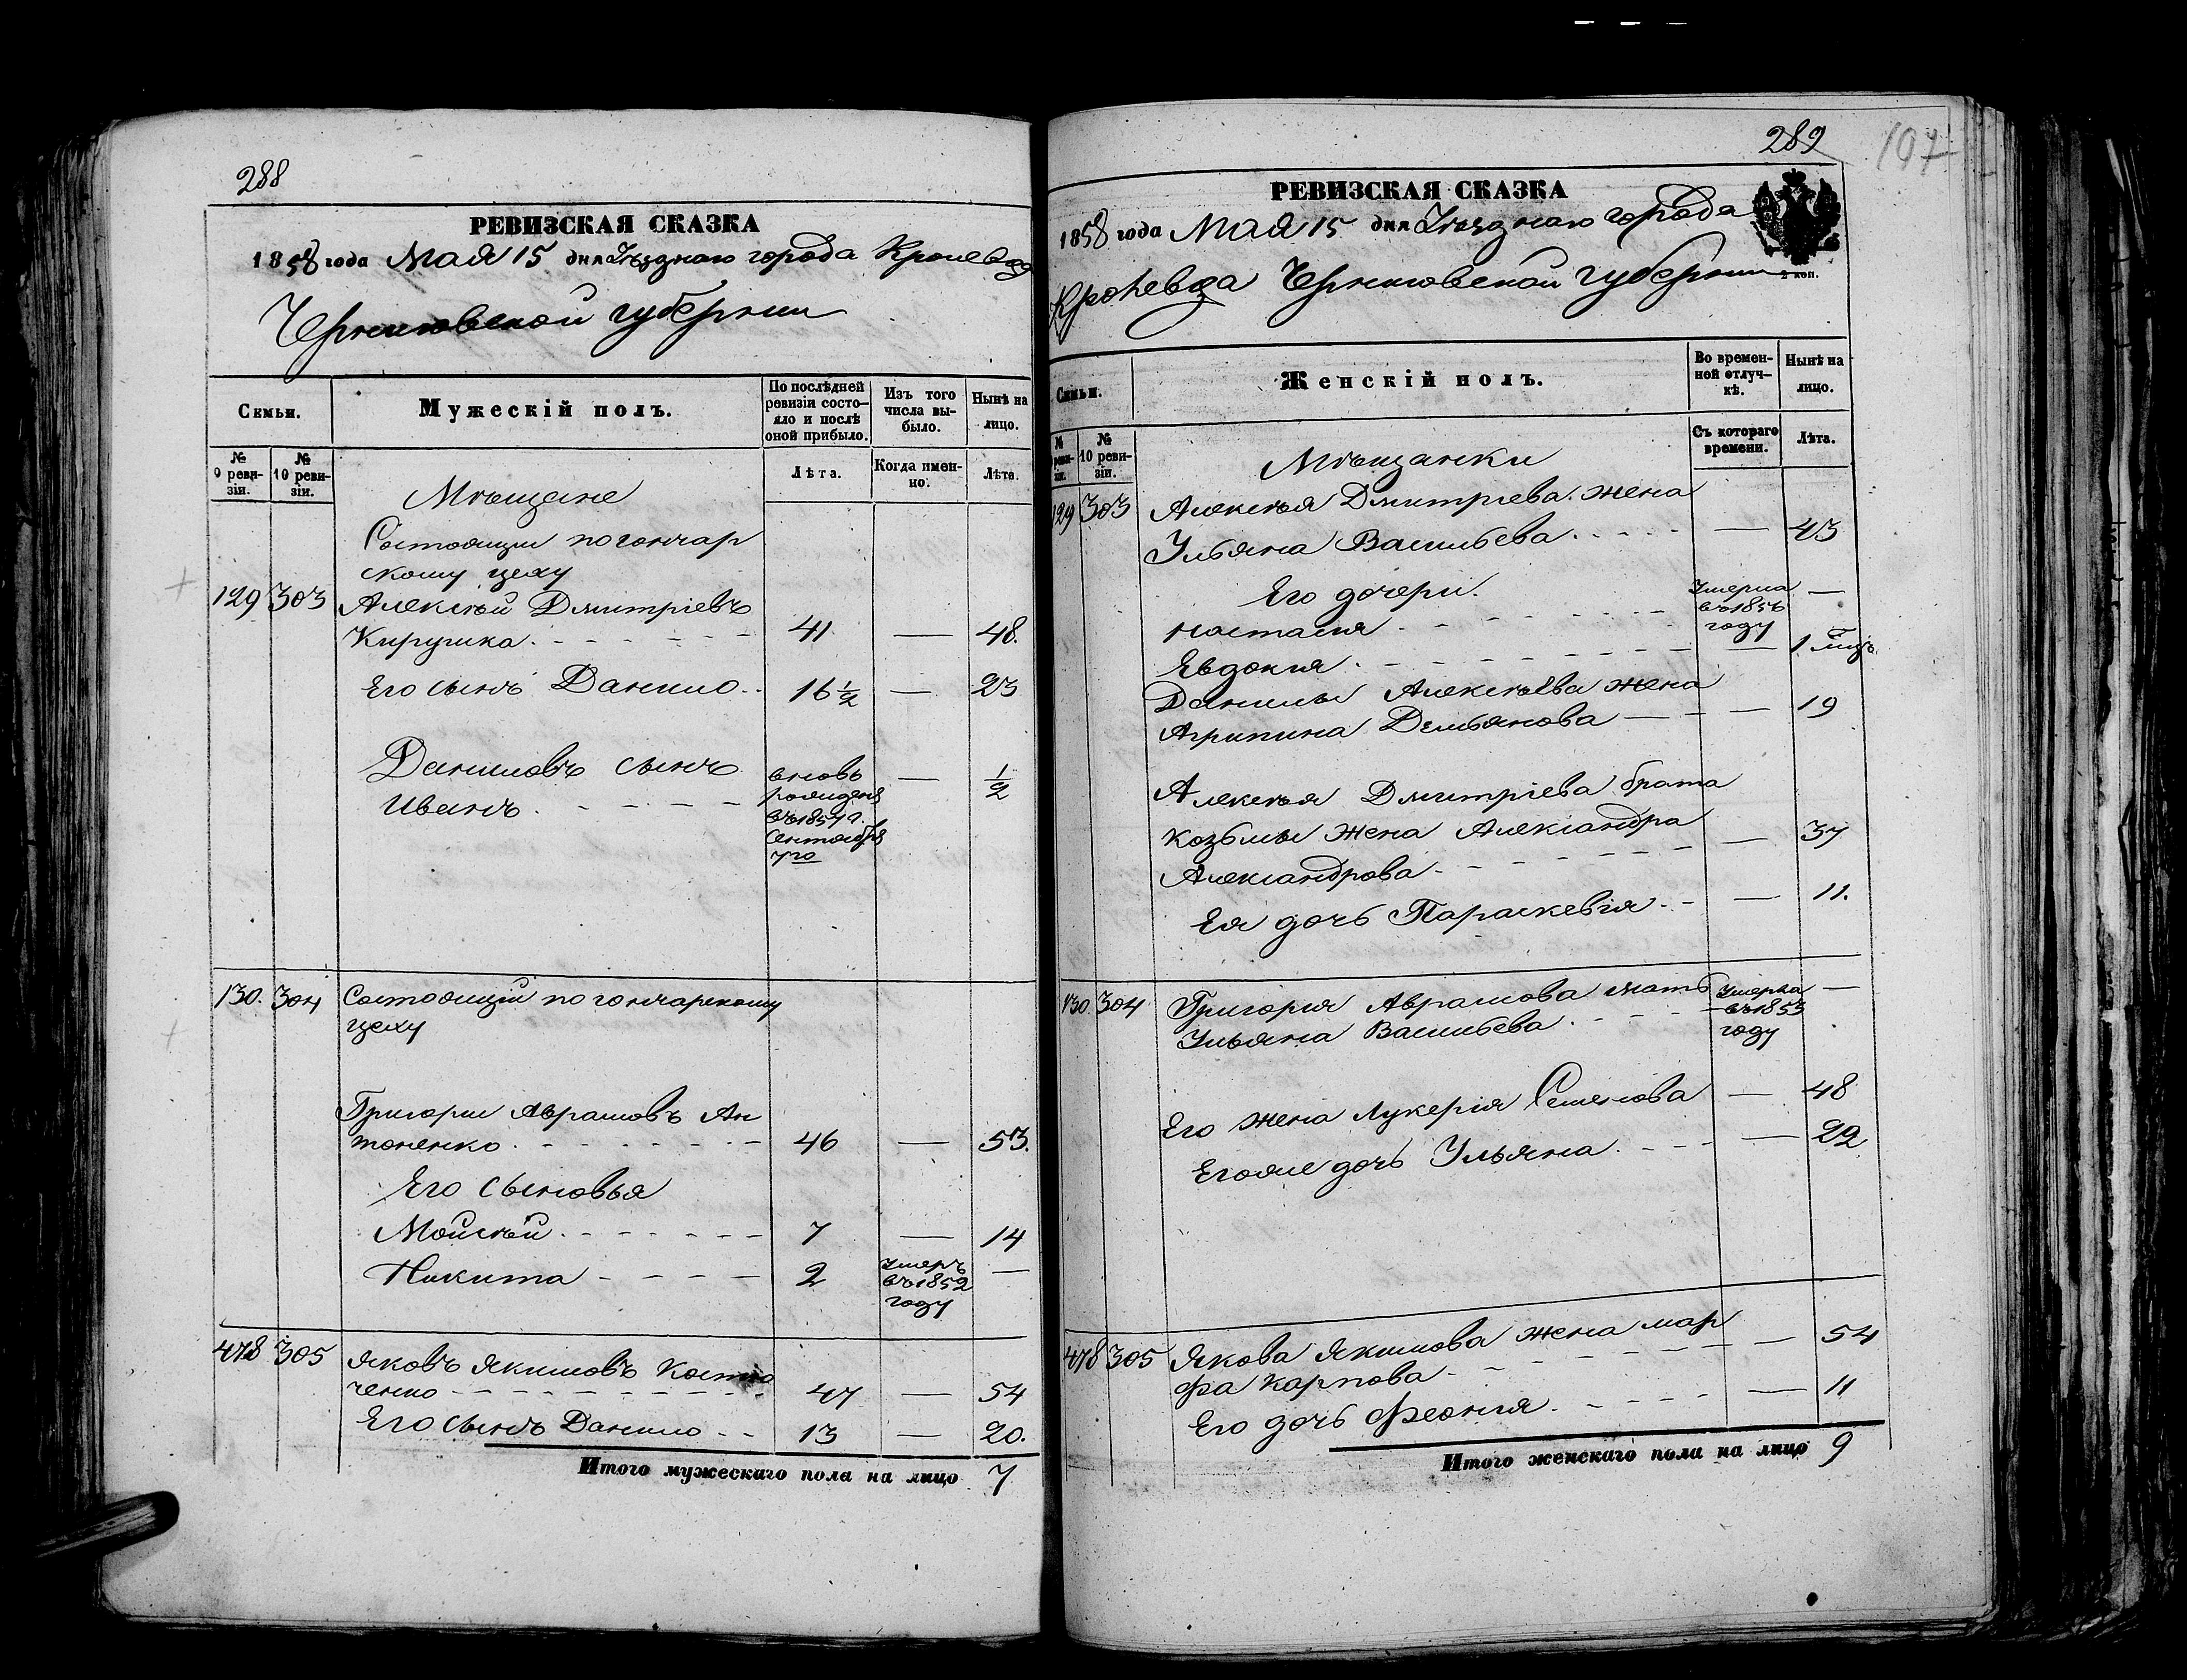 288
РЕВИЗСКАЯ СКАЗКА
1858 года Мая 15 дня Уѣзднаго города Кролевца
Черниговской губерніи
Семьи.
Мужескій полъ.
По послѣдней ревизіи состояло и послѣ оной прибыло.
Изъ того числа выбыло.
Нынѣ на лицо.
№ 9 ревизіи.
№ 10 ревизіи.
Лѣта.
Когда именно.
Лѣта.
Мѣщане
Состоящіи по гончар
скому цеху
129 303 Алексѣй Дмитріевъ
Кирушка 41 — 48.
Его сынъ Данило 16 1/2 — 23
Даниловъ сынъ
Иванъ вновь рожденъ въ 1857 г. Сентября 7го — 1/2
130. 304 Состоящій по гончарскому
цеху
Григорій Аврамовъ Ан
тоненко 46 — 53.
Его сыновья
Мойсѣй 7 — 14
Никита 2 Умеръ въ 1852 году —
478 305 Яковъ Якимовъ Костю
ченко 47 — 54
Его сынъ Данило 13 — 20.
Итого мужескаго пола на лицо 7
289
107
РЕВИЗСКАЯ СКАЗКА
1858 года Мая 15 дня Уѣзднаго города
Кролевца Черниговской губерніи
2 коп.
Семьи.
Женскій полъ.
Во временной отлучкѣ.
Нынѣ на лицо.
№ ревизіи.
№ 10 ревизіи.
Съ котораго времени.
Лѣта.
Мѣщанки
129 303 Алексѣя Дмитріева жена
Ульяна Васильева — 43
Его дочери.
Настасія Умерла въ 185ъ году —
Евдокія — 1 мѣз.
Данилы Алексѣева жена
Агрипина Демьянова — 19
Алексѣя Дмитріева брата
Козьмы жена Александра
Александрова — 37
Ея дочь Параскевія — 11.
130 304 Григорія Аврамова мать
Ульяна Васильева Умерла въ 1853 году —
Его жена Лукерія Семенова — 48
Егоже дочь Ульяна — 22
478 305 Якова Якимова жена мар
фа Карпова — 54
Его дочь Феонія — 11
Итого женскаго пола на лицо 9